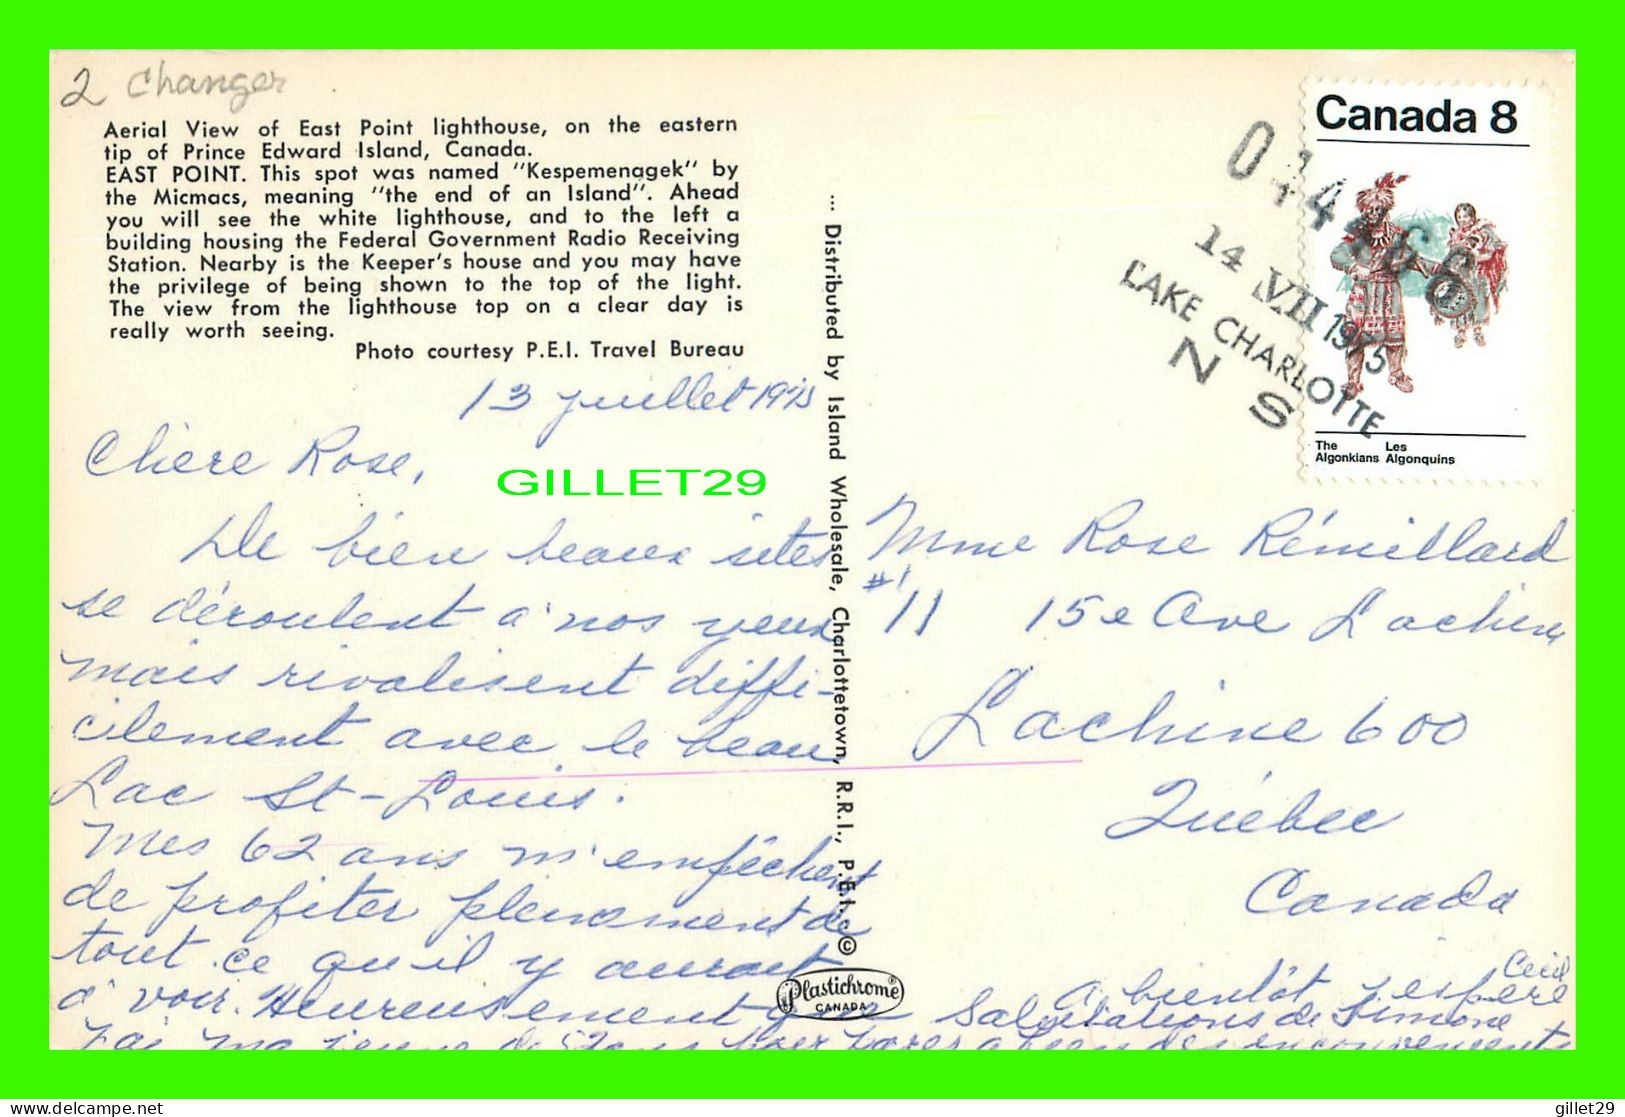 2 Changer
Aerial View of East Point lighthouse, on the eastern
tip of Prince Edward Island, Canada.
EAST POINT. This spot was named "Kespemenagek" by
the Micmacs, meaning "the end of an Island". Ahead
you will see the white lighthouse, and to the left a
building housing the Federal Government Radio Receiving
Station. Nearby is the Keeper's house and you may have
the privilege of being shown to the top of the light.
The view from the lighthouse top on a clear day is
really worth seeing.
Photo courtesy P.E.I. Travel Bureau
13 juillet 1975
Chère Rose,
De bien beaux sites
se déroulent à nos yeux
mais rivalisent diffi-
cilement avec le beau
Lac St-Louis.
Mes 62 ans m'empêchent
de profiter pleinement de
tout ce qu'il y aurait
à voir. Heureusement que
j'ai ma jeune de 52 ans pour
... Distributed by Island Wholesale, Charlottetown, R.R.1., P.E.I. ©
Plastichrome®
CANADA
Canada 8
The Les
Algonkians Algonquins
14 VII 1975
LAKE CHARLOTTE
N S
Mme Rose Rémillard
#1
11 15e Ave Lachine
Lachine 600
Québec
Canada
à bientôt j'espère
Cécile
Salutations de Simone
GILLET29
delcampe.net
gillet29